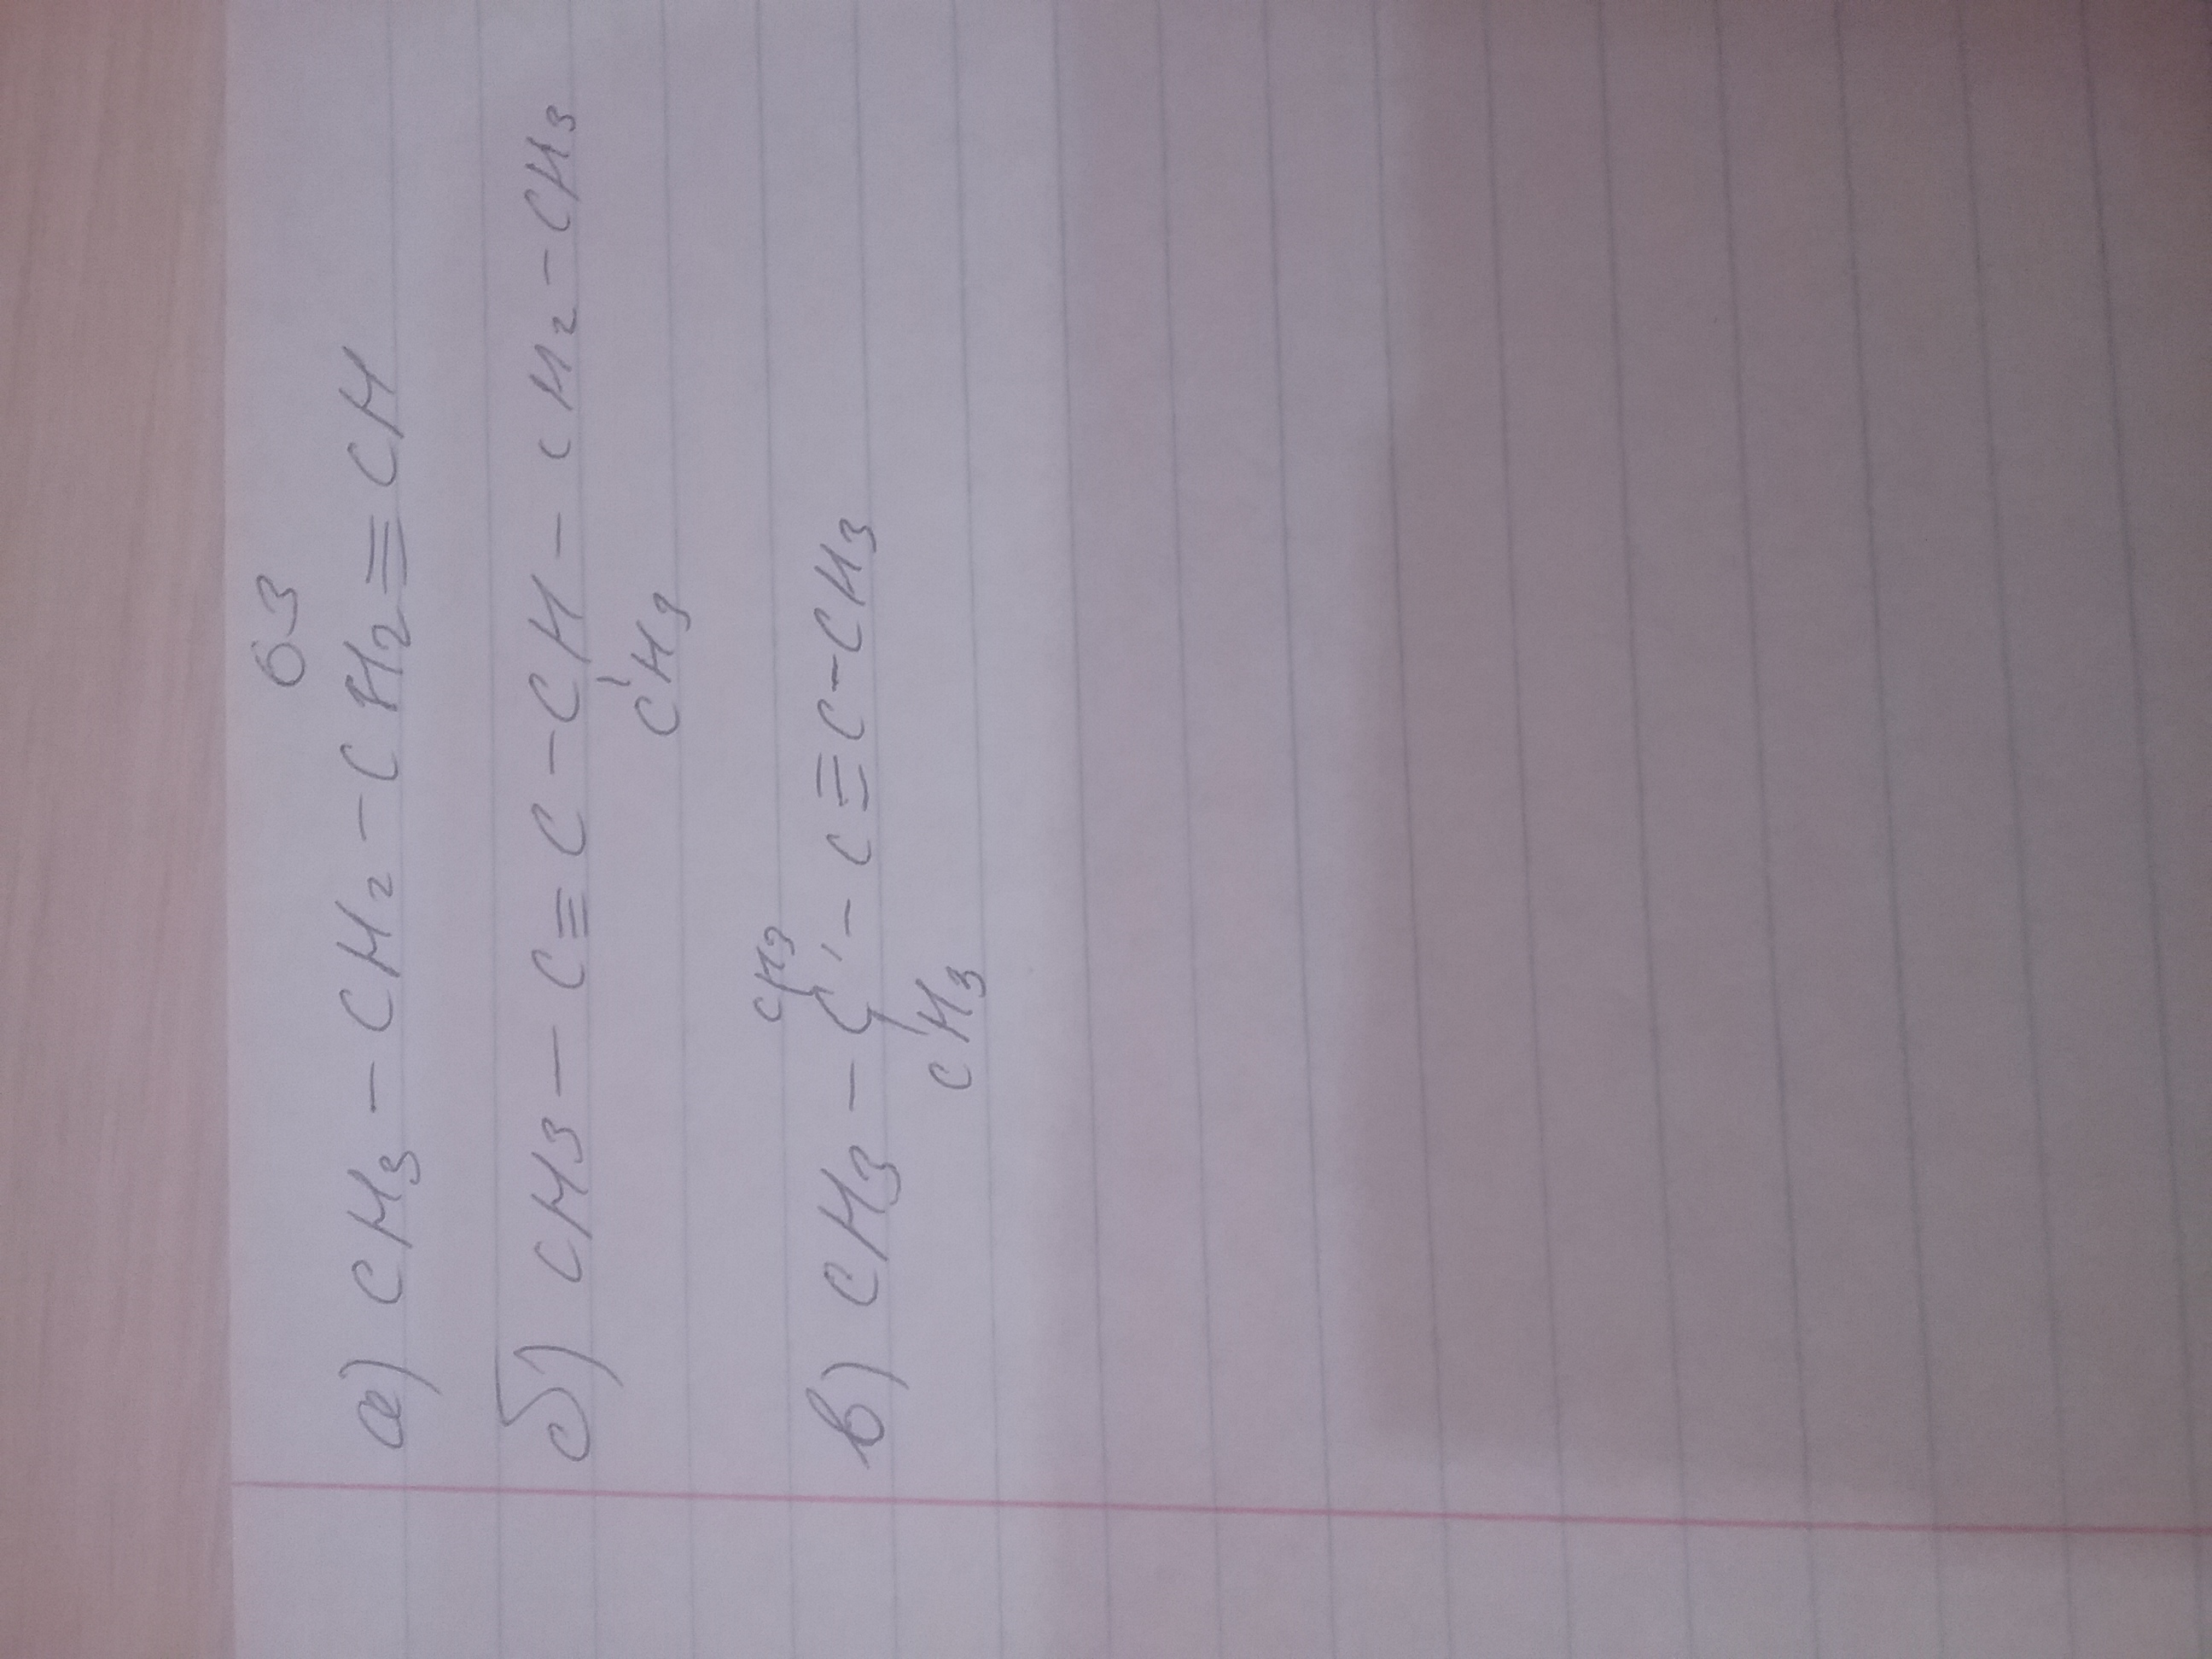 63
а) CH3 - CH2 - CH2 ≡ CH
б) CH3 - C ≡ C - CH - CH2 - CH3
CH3
CH3
в) CH3 - C - C ≡ C - CH3
CH3